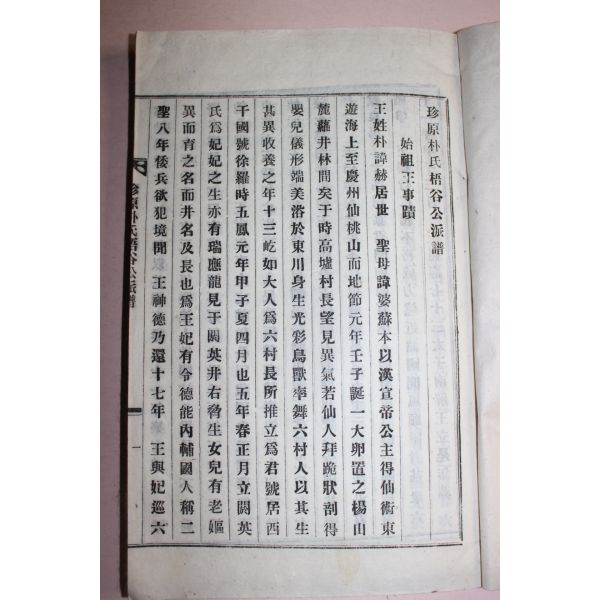 珍原朴氏梧谷公派譜
始祖王事蹟
王姓朴諱赫居世 聖母諱婆蘇本以漢宣帝公主得仙術東
遊海上至慶州仙桃山而地節元年壬子誕一大卵置之楊山
麓蘿井林間矣于時高墟村長望見異氣若仙人拜跪狀剖得
嬰兒儀形端美浴於東川身生光彩鳥獸率舞六村人以其生
甚異收養之年十三屹如大人爲六村長所推立爲君號居西
干國號徐羅時五鳳元年甲子夏四月也五年春正月立閼英
氏爲妃妃之生亦有瑞應龍見于閼英井右脅生女兒有老嫗
異而育之名而井名及長也爲王妃有令德能內輔國人稱二
聖八年倭兵欲犯境聞 王神德乃還十七年 王與妃巡六
珍原朴氏梧谷公派譜
一